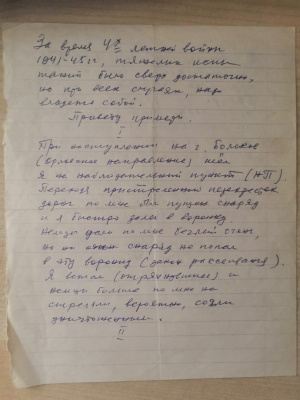 За время 4х летней войны
1941-45 гг, тяжелых испы
таний было сверх достаточно,
но при всех случаях, надо
владеть собой.
Приведу примеры.
I
При наступлении на г. Болхов
(орловское направление) шёл
я на наблюдательный пункт (НП).
Переходя пристрелянный перекресток
дорог по мне был пущен снаряд
и я быстро залег в воронку
немцы дали по мне беглый огонь,
но ни один снаряд не попал
в эту воронку (закон рассеивания).
Я встал (отряхнувшись) и
немцы больше по мне не
стреляли, вероятно, сочли
уничтоженным.
II